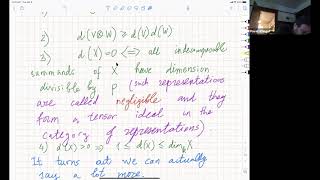 2) d(V⊗W) ≥ d(V)d(W)
3) d(X)=0 ⟺ all indecomposable
summands of X have dimension
divisible by p (such representations
are called negligible and they
form a tensor ideal in the
category of representations)
4) d(X)>0 ⟹ 1 ≤ d(X) ≤ dim X
It turns out we can actually
say a lot more.